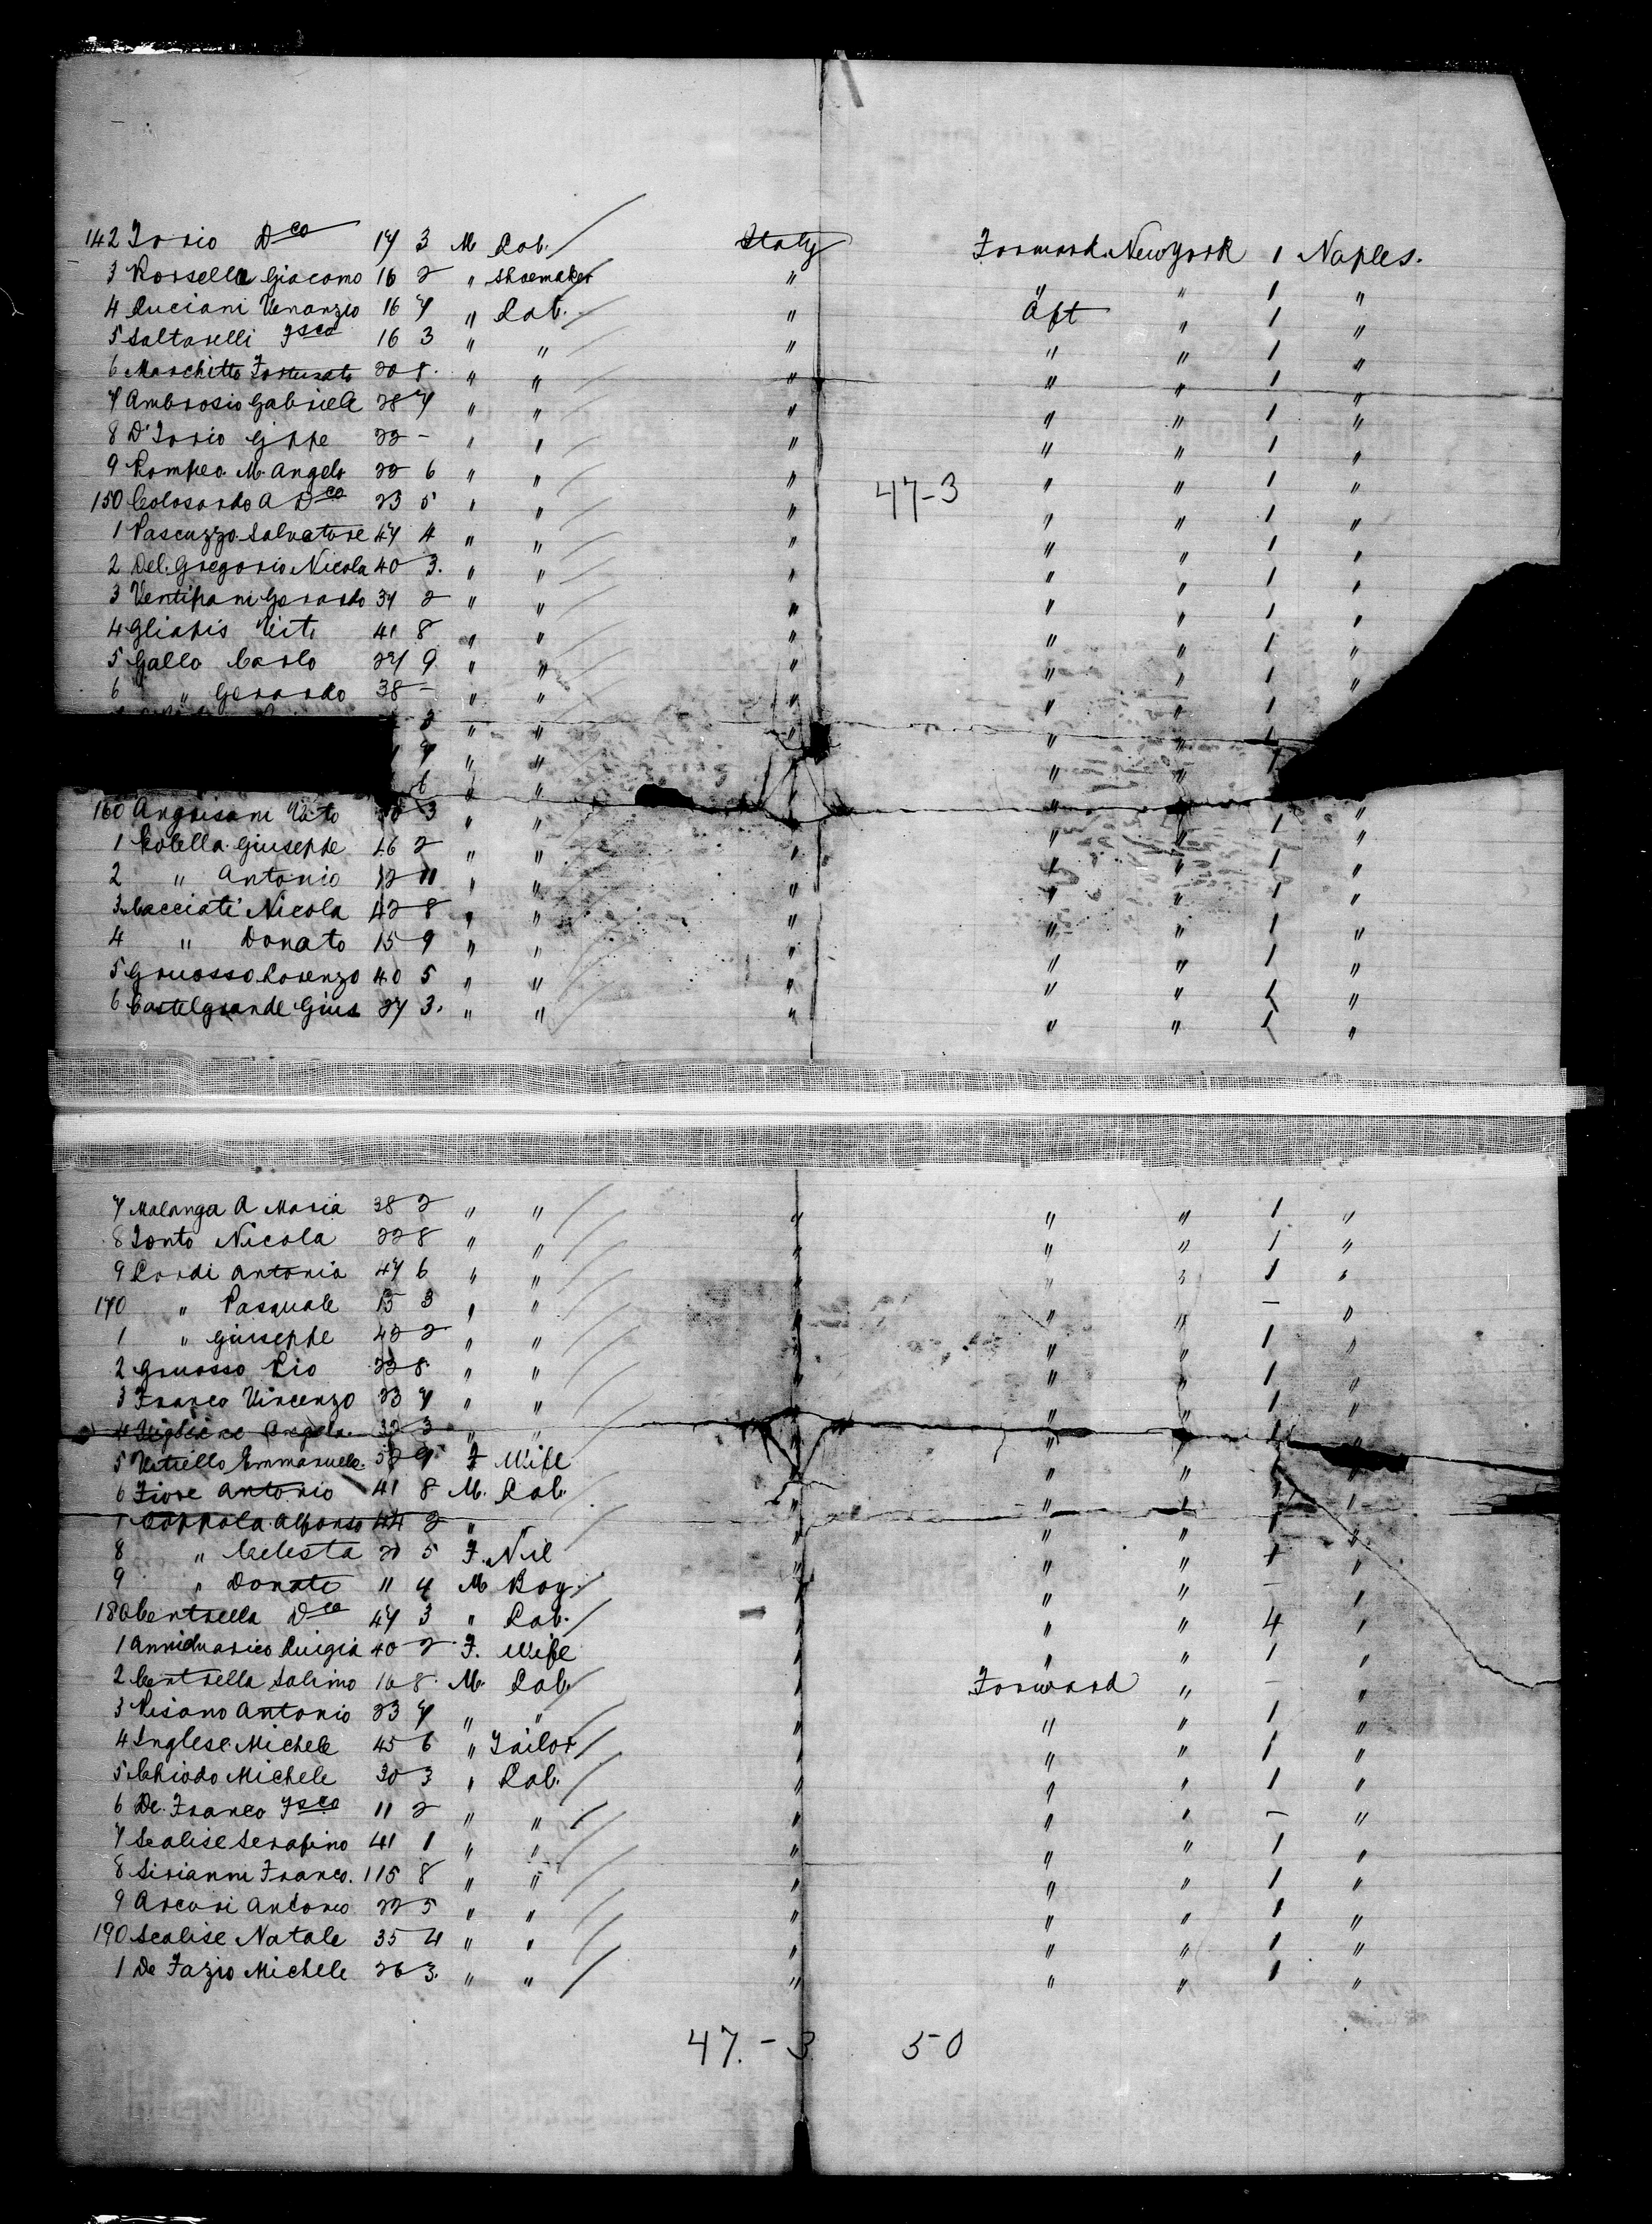 142 Iorio Dco 17 3 M Lab. Italy Forward New York 1 Naples.
3 Rossella Giacomo 16 2 " Shoemaker " " " 1 "
4 Luciani Venanzio 16 7 " Lab. " Aft " 1 "
5 Saltarelli Fsco 16 3 " " " " " 1 "
6 Marchitto Fortunato 20 8. " " " " " 1 "
7 Ambrosio Gabriele 28 7 " " " " " 1 "
8 D'Iorio Gippe 22 - " " " " " 1 "
9 Pompeo M. Angelo 22 6 " " " " " 1 "
47-3
150 Colosardo A Dco 23 5 " " " " " 1 "
1 Pascuzzo Salvatore 47 4 " " " " " 1 "
2 Del Gregorio Nicola 40 3. " " " " " 1 "
3 Ventipani Gerardo 37 2 " " " " " 1 "
4 Gliapis Vito 41 8 " " " " " 1 "
5 Gallo Carlo 27 9 " " " " " 1 "
6 " Gerardo 38 - " " " " " 1
2 " " " " " 1
7 " " " " " 1
6 " " " "
160 Angrisani Vito 3 " " " " " 1 "
1 Colella Giuseppe 46 2 " " " " " 1 "
2 " Antonio 12 11 " " " " " 1 "
3 Cacciati Nicola 42 8 " " " " " 1 "
4 " Donato 15 9 " " " " " 1 "
5 Gruosso Lorenzo 40 5 " " " " " 1 "
6 Castelgrande Gius 27 3. " " " " " 1 "
7 Malanga A Maria 38 2 " " " " " 1 "
8 Tonto Nicola 22 8 " " " " " 1 "
9 Lordi Antonio 47 6 " " " " " 1 "
170 " Pasquale 15 3 " " " " " - "
1 " Giuseppe 42 2 " " " " " 1 "
2 Gruosso Pio 22 8. " " " " " 1 "
3 Franco Vincenzo 23 7 " " " " " 1 "
4 Angela 32 3 " " " " 1 "
5 Vitiello Emmanuele 52 9 F Wife " " " 1 "
6 Fiore Antonio 41 8 M. Lab. " " " 1 "
7 Coppola Alfonso 44 2 " " " " 1 "
8 " Celesta 21 5 F. Nil " " " 1 "
9 " Donato 11 4 M Boy. " " " - "
180 Centrella Dco 47 3 " Lab. " " " 4 "
1 Annichiarico Luigia 40 2 F. Wife " " " 1 "
2 Centrella Salimo 16 8. M. Lab. " Forward " - "
3 Pisano Antonio 23 7 " " " " " 1 "
4 Inglese Michele 45 6 " Tailor " " " 1 "
5 Chiodo Michele 30 3 " Lab. " " " 1 "
6 De Franco Fsco 11 2 " " " " " - "
7 Scalise Serafino 41 1 " " " " " 1 "
8 Sirianni Franco. 115 8 " " " " " 1 "
9 Arcuri Antonio 22 5 " " " " " 1 "
190 Scalise Natale 35 4 " " " " " 1 "
1 De Fazio Michele 26 3. " " " " " 1 "
47.-3 50